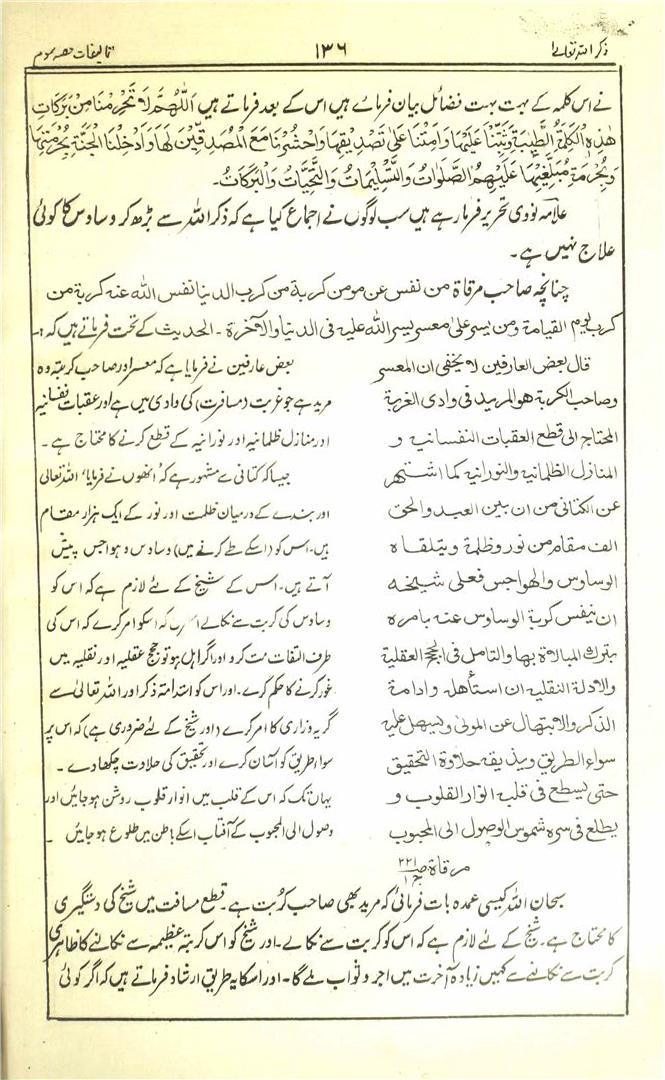 ذکر اللہ تعالیٰ ۱۳۶ تالیفات حصہ سوم
نے اس کلمہ کے بہت بہت فضائل بیان فرمائے ہیں اس کے بعد فرماتے ہیں اَللّٰهُمَّ لَا تَحْرِمْنَا مِنْ بَرَكَاتِ
هٰذِهِ الْكَلِمَةِ الطَّيِّبَةِ وَثَبِّتْنَا عَلَيْهَا وَاَمِتْنَا عَلٰى تَصْدِيْقِهَا وَاحْشُرْنَا مَعَ الْمُصَدِّقِيْنَ لَهَا وَاَدْخِلْنَا الْجَنَّةَ بِحُرْمَتِهَا
وَبِحُرْمَةِ مُبَلِّغِيْهَا عَلَيْهِمُ الصَّلَوَاتُ وَالتَّسْلِيْمَاتُ وَالتَّحِيَّاتُ وَالْبَرَكَاتُ۔
علامہ نووی تحریر فرما رہے ہیں سب لوگوں نے اجماع کیا ہے کہ ذکر اللہ سے بڑھ کر وساوس کا کوئی
علاج نہیں ہے۔
چنانچہ صاحب مرقاۃ من نفس عن مومن كربة من كرب الدنيا نفس الله عنه كربة من
كرب يوم القيامة ومن يسر على معسر يسر الله عليه فى الدنيا والآخرة۔ الحديث کے تحت فرماتے ہیں کہ:-
قال بعض العارفين لا يخفى ان المعسر
وصاحب الكربة هو المريد فى وادى الغربة
المحتاج الى قطع العقبات النفسانية و
المنازل الظلمانية والنورانية كما اشتهر
عن الكتانى من ان بين العبد والحق
الف مقام من نور وظلمة ويتلقاه
الوساوس والهواجس فعلى شيخه
ان ينفس كربة الوساوس عنه بامره
بترك المبالاة بها والتامل فى الحجج العقلية
والادلة النقلية ان استأهل وادامة
الذكر والابتهال عن المولى ويسهل عليه
سواء الطريق ويذيقه حلاوة التحقيق
حتى يسطع فى قلبه انوار القلوب و
يطلع فى سره شموس الوصول الى المحبوب
مرقاۃ ص۲۲۱ ج۱
بعض عارفین نے فرمایا ہے کہ معسر اور صاحب کربتہ وہ
مرید ہے جو غربت (مسافرت) کی وادی میں ہے اور عقبات نفسانیہ
اور منازل ظلمانیہ اور نورانیہ کے قطع کرنے کا محتاج ہے۔
جیسا کہ کتانی سے مشہور ہے کہ انھوں نے فرمایا، اللہ تعالی
اور بندے کے درمیان ظلمت اور نور کے ایک ہزار مقام
ہیں۔ اس کو (اسکے طے کرنے میں) وساوس و ہواجس پیش
آتے ہیں۔ اس کے شیخ کے لئے لازم ہے کہ اس کو
وساوس کی کربت سے نکالے کہ اسکو امر کرے کہ اس کی
طرف التفات مت کرو اور اگر اہل ہو تو حجج عقلیہ اور نقلیہ میں
غور کرنے کا حکم کرے۔ اور اس کو ذکر اور اللہ تعالیٰ سے
گریہ وزاری کا امر کرے (اور شیخ کے لئے ضروری ہے) کہ اس پر
سواء طریق کو آسان کرے اور تحقیق کی حلاوت چکھا دے۔
یہاں تک کہ اس کے قلب میں انوار قلوب روشن ہو جائیں اور
وصول الی المحبوب کے آفتاب اسکے باطن میں طلوع ہو جائیں۔
سبحان اللہ کیسی عمدہ بات فرمائی کہ مرید بھی صاحب کُربت ہے۔ قطع مسافت میں شیخ کی دستگیری
کا محتاج ہے۔ شیخ کے لئے لازم ہے کہ اس کو کربت سے نکالے۔ اور شیخ کو اس کربتہ عظیمہ سے نکالنے کا ظاہری
کربت سے نکالنے سے کہیں زیادہ آخرت میں اجر و ثواب ملے گا۔ اور اسکا یہ طریق ارشاد فرماتے ہیں کہ اگر کوئی